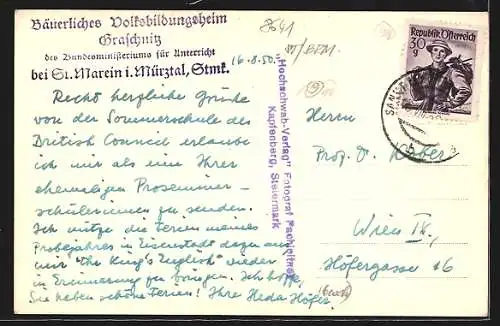 Bäuerliches Volksbildungsheim
Graschnitz
des Bundesministeriums für Unterricht
bei St. Marein i. Mürztal, Stmk.
16.8.50.
Recht herzliche Grüße
von der Sommerschule des
British Council erlaube
ich mir als eine Ihrer
ehemaligen Proseminar-
schülerinnen zu senden.
Ich nütze die Ferien meines
Probejahres in Eisenstadt dazu aus
mir "the King's English" wieder
in Erinnerung zu bringen. Ich hoffe,
Sie haben schöne Ferien! Ihre Heda Höfer.
"Hochschwab-Verlag" Fotograf
Kapfenberg, Steiermark
Republik Österreich
30
g
Herrn
Prof. Dr.
Wien IX,
Höfergasse 16